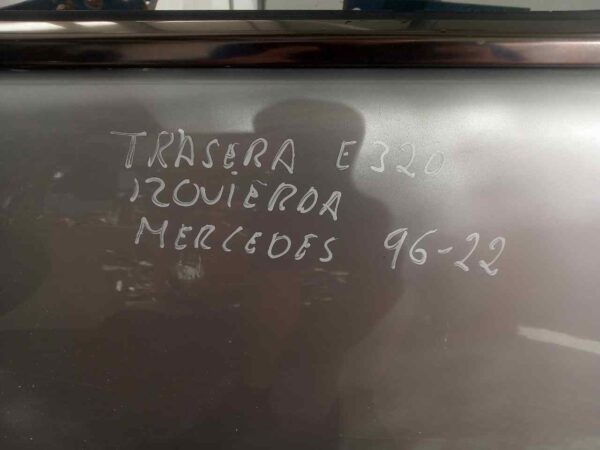 TRASERA E320
IZQUIERDA
MERCEDES 96-22